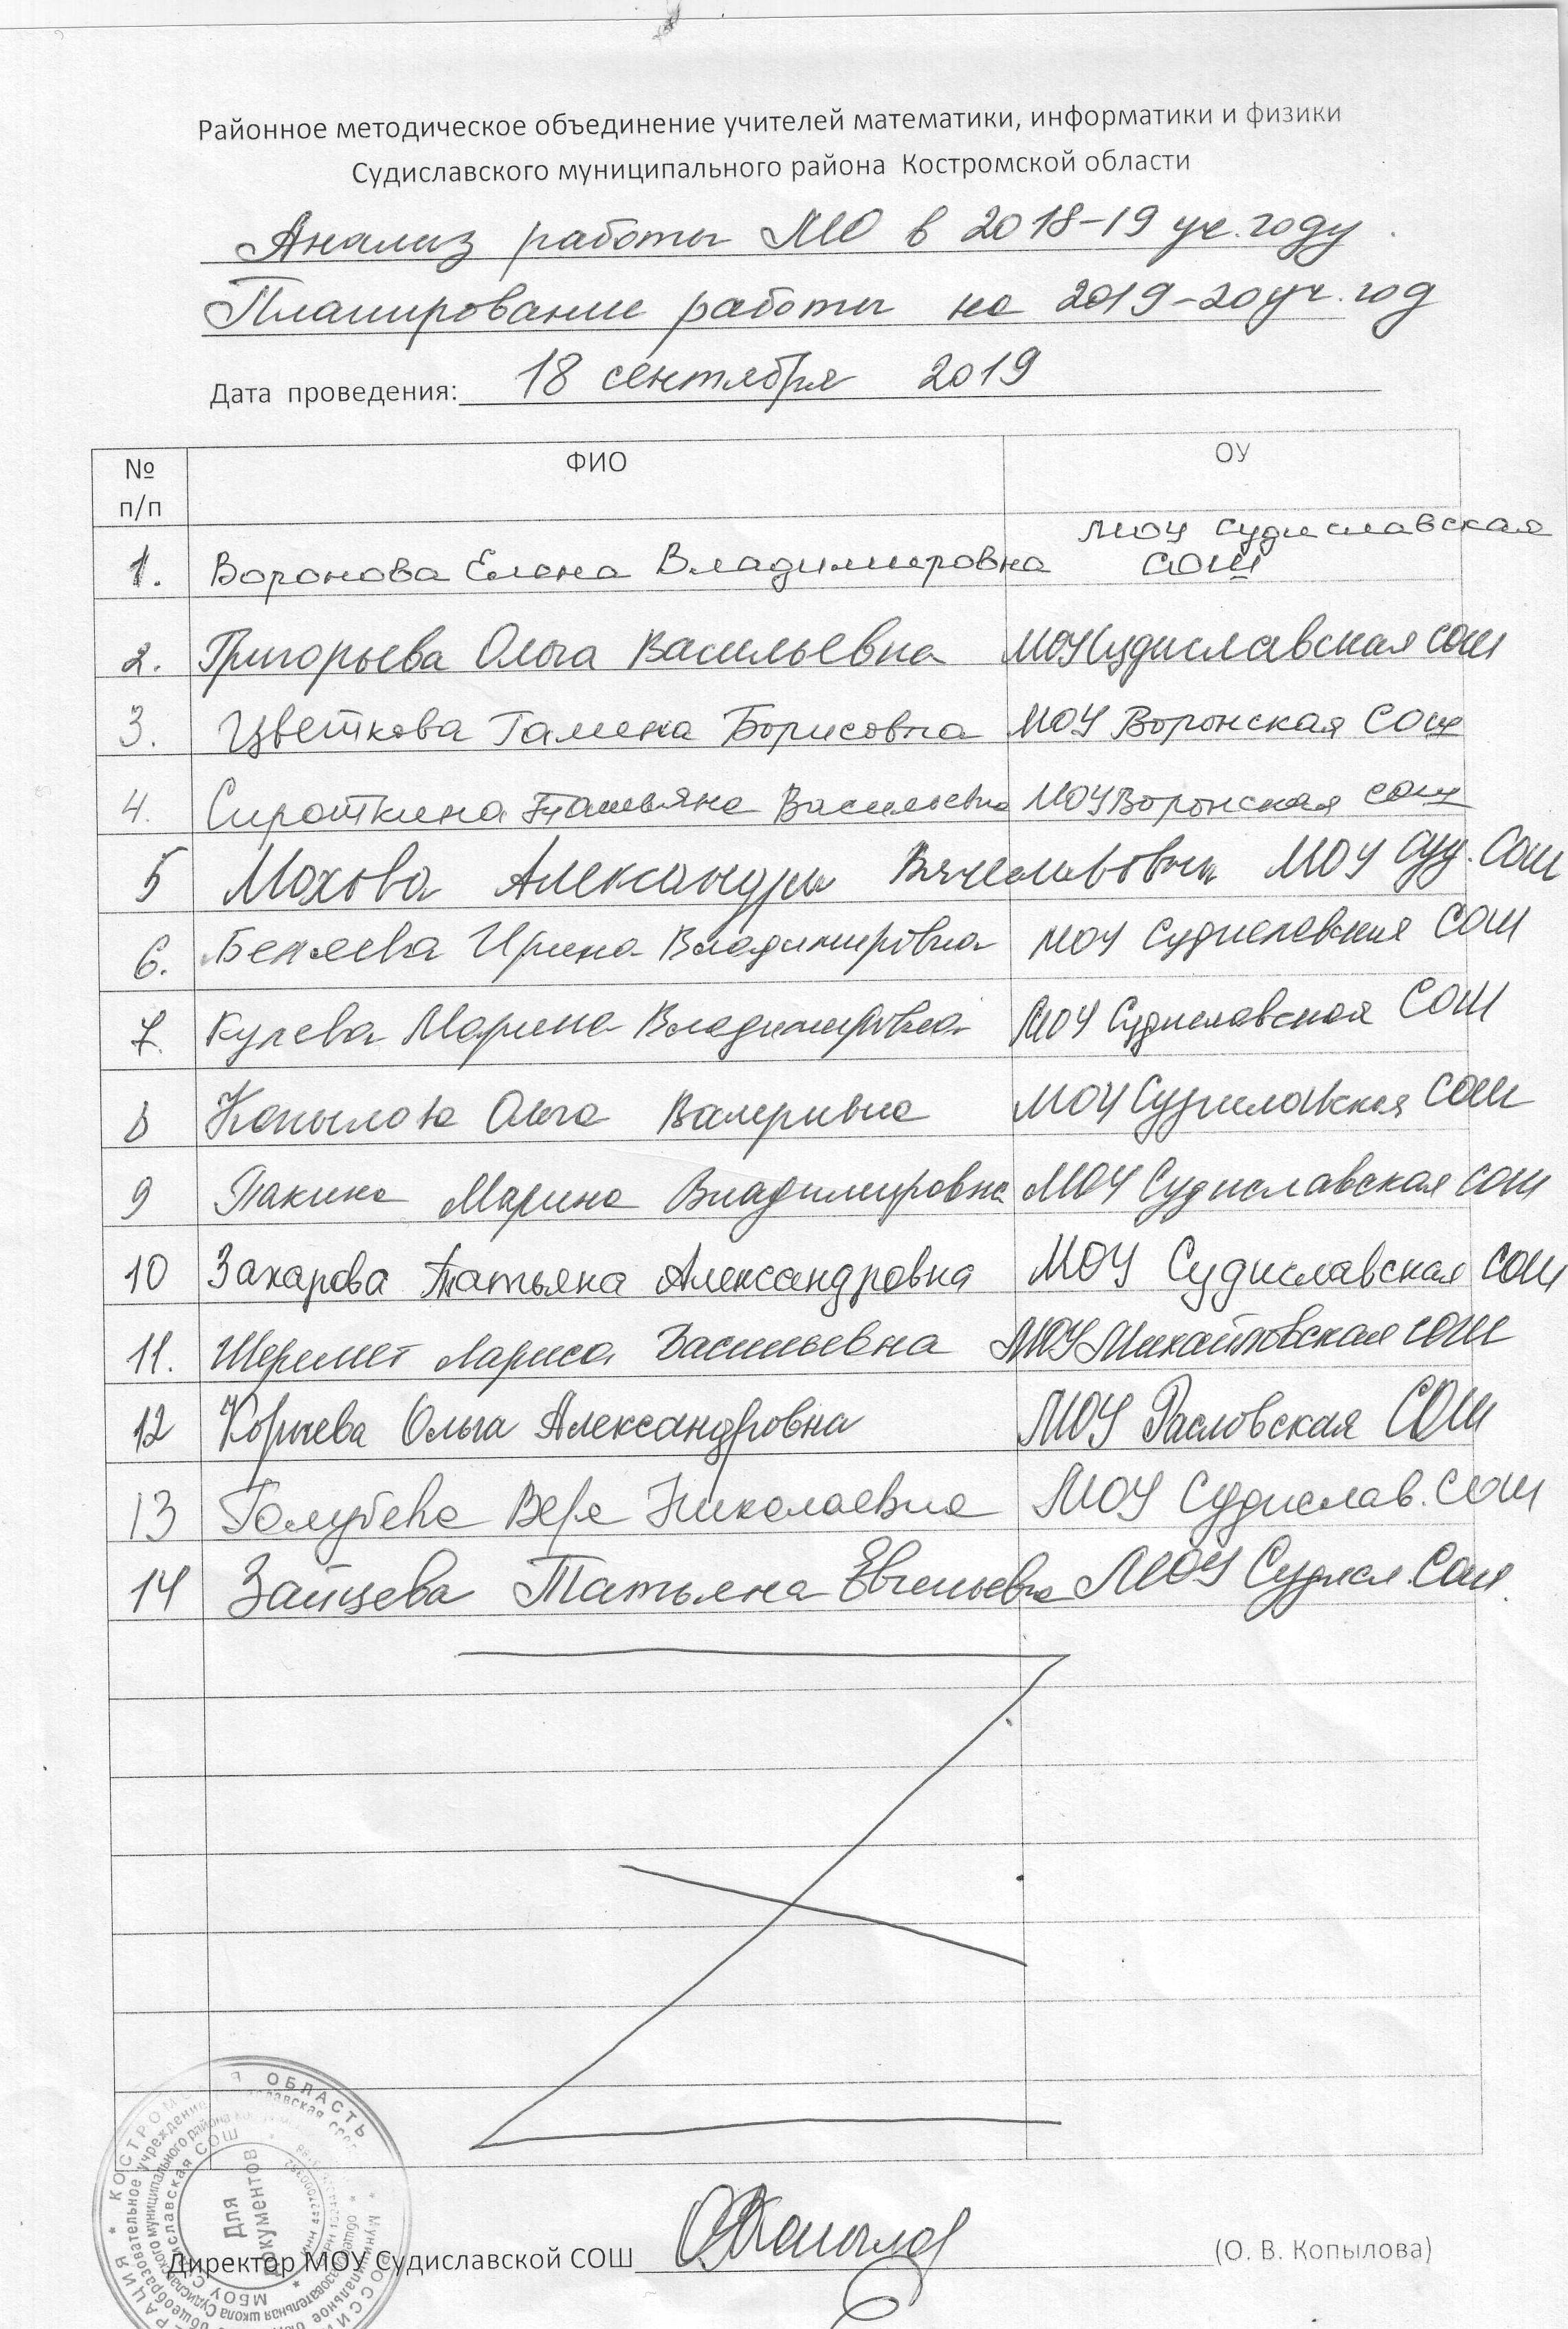 Районное методическое объединение учителей математики, информатики и физики
Судиславского муниципального района Костромской области
Анализ работы МО в 2018-19 уч. году.
Планирование работы на 2019-20 уч. год
Дата проведения: 18 сентября 2019
№ п/п ФИО ОУ
1. Воронова Елена Владимировна МОУ Судиславская СОШ
2. Григорьева Ольга Васильевна МОУ Судиславская СОШ
3. Цветкова Галина Борисовна МОУ Воронская СОШ
4. Сироткина Татьяна Васильевна МОУ Воронская СОШ
5 Мохова Александра Вячеславовна МОУ Суд. СОШ
6. Беляева Ирина Владимировна МОУ Судиславская СОШ
7. Кулева Марина Владимировна МОУ Судиславская СОШ
8 Копылова Ольга Валерьевна МОУ Судиславская СОШ
9 Пакина Марина Владимировна МОУ Судиславская СОШ
10 Захарова Татьяна Александровна МОУ Судиславская СОШ
11. Шеремет Лариса Васильевна МОУ Михайловская СОШ
12 Ольга Александровна МОУ Расловская СОШ
13 Голубева Вера Николаевна МОУ Судислав. СОШ
14 Зайцева Татьяна Евгеньевна МОУ Судисл. СОШ.
ОБЛАСТЬ
Для
документов
МБОУ
Директор МОУ Судиславской СОШ (О. В. Копылова)